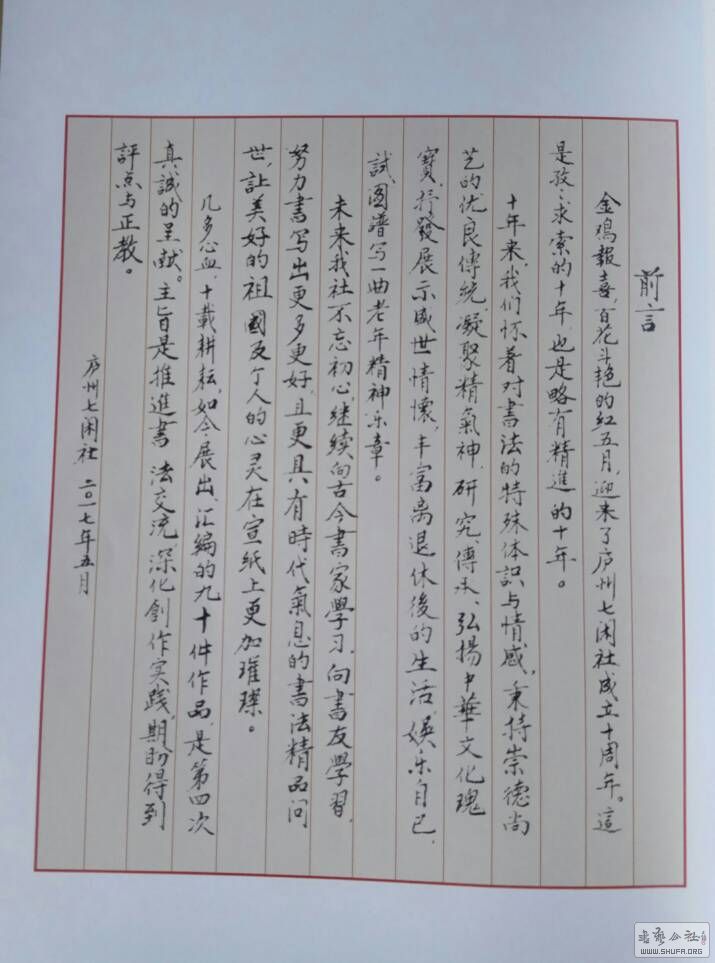 前言
金鸡報喜，百花斗艳的红五月，迎来了庐州七闲社成立十周年。這
是孜々求索的十年，也是略有精進的十年。
十年来，我们怀着对書法的特殊体識与情感，秉持崇德尚
艺的优良傳統，凝聚精氣神，研究傳承、弘揚中華文化瑰
寶，抒發展示盛世情懷，丰富离退休後的生活，娱乐自己，
試圖譜写一曲老年精神乐章。
未来我社不忘初心，继续向古今書家學习，向書友學習，
努力書写出更多更好，且更具有時代氣息的書法精品问
世，让美好的祖國及个人的心灵在宣纸上更加璀璨。
几多心血，十載耕耘，如今展出、汇编的九十件作品，是第四次
真誠的呈献。主旨是推進書法交流，深化創作实践，期盼得到
評点与正教。
庐州七闲社 二〇一七年五月
書藝公社
WWW.SHUFA.ORG